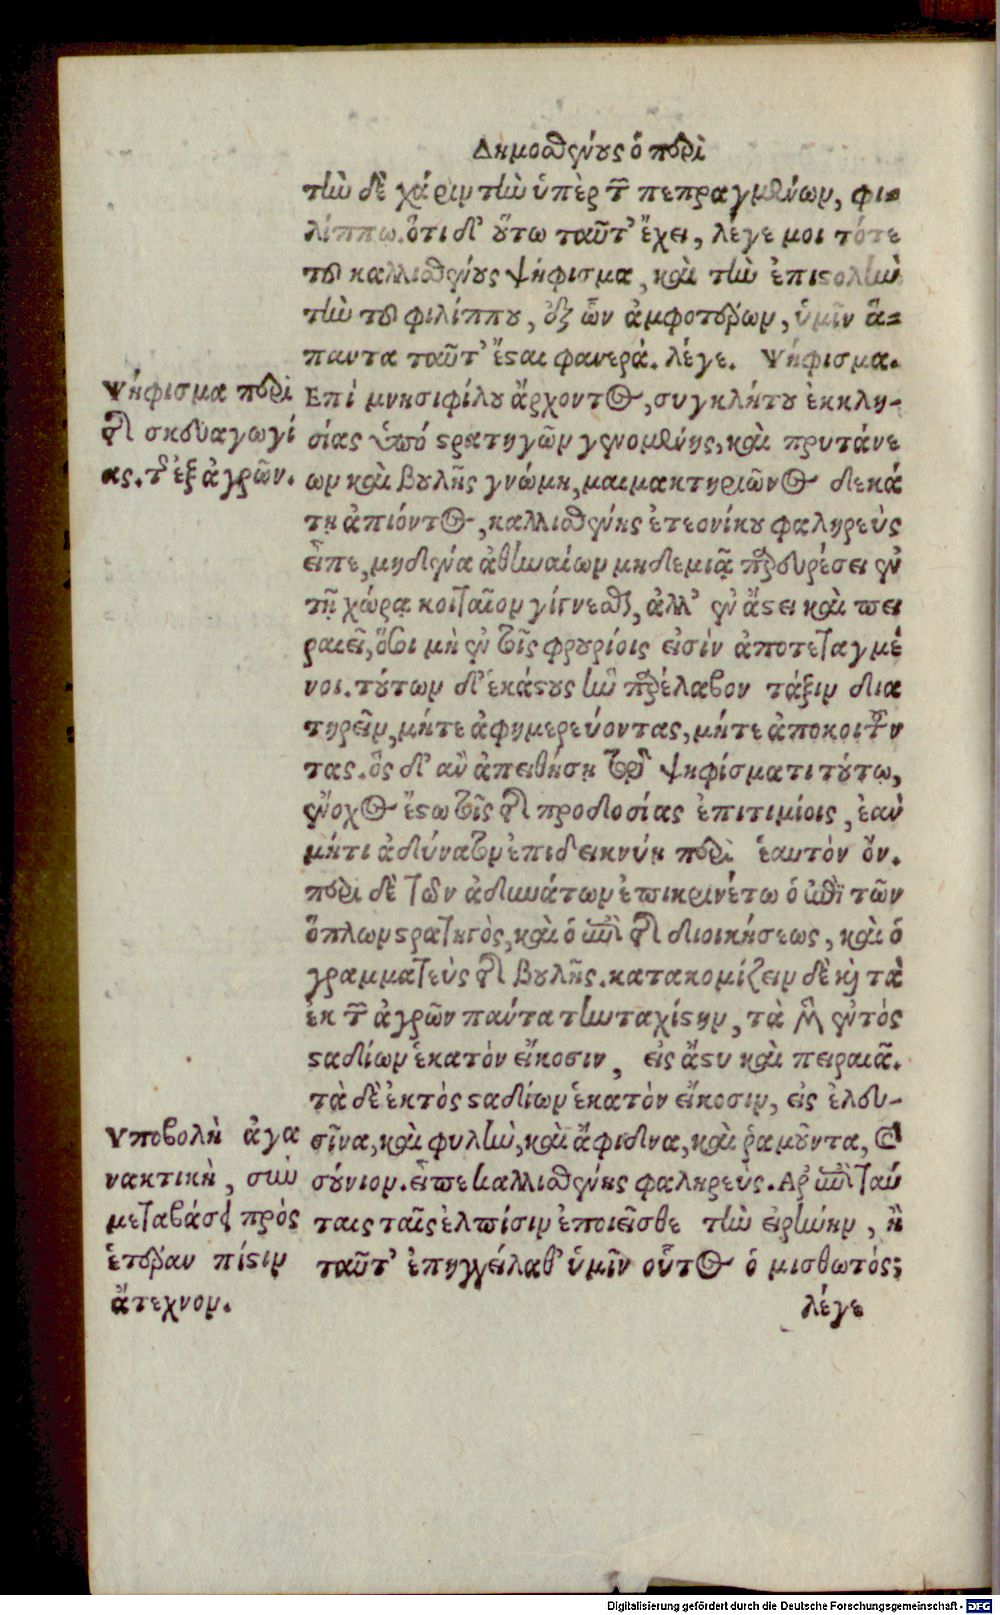 Δημοσθένους ὁ περὶ
τὴν δὲ χάριν τὴν ὑπὲρ τῶν πεπραγμένων, φι-
λίππῳ. ὅτι δ' οὕτω ταῦτ' ἔχει, λέγε μοι τότε
τὸ καλλισθένους ψήφισμα, καὶ τὴν ἐπιστολὴν
τὴν τοῦ φιλίππου, ἐξ ὧν ἀμφοτέρων, ὑμῖν ἅ-
παντα ταῦτ' ἔσται φανερά. λέγε. Ψήφισμα.
Ψήφισμα περὶ
τῆς σκευαγωγί
ας. τῆς ἐξ ἀγρῶν.
Επὶ μνησιφίλου ἄρχοντος, συγκλήτου ἐκκλη-
σίας ὑπὸ στρατηγῶν γενομένης, καὶ πρυτάνε
ων καὶ βουλῆς γνώμη, μαιμακτηριῶνος δεκά
τῃ ἀπιόντος, καλλισθένης ἐτεονίκου φαληρεὺς
εἶπε, μηδένα ἀθηναίων μηδεμιᾷ παρευρέσει ἐν
τῇ χώρᾳ κοιταῖον γίγνεσθαι, ἀλλ' ἐν ἄστει καὶ πει
ραιεῖ, ὅσοι μὴ ἐν τοῖς φρουρίοις εἰσὶν ἀποτεταγμέ
νοι. τούτων δ' ἑκάστους ἣν παρέλαβον τάξιν δια
τηρεῖν, μήτε ἀφημερεύοντας, μήτε ἀποκοιτοῦν
τας. ὃς δ' ἂν ἀπειθήσῃ τῷ ψηφίσματι τούτῳ,
ἔνοχος ἔστω τοῖς τῆς προδοσίας ἐπιτιμίοις, ἐὰν
μήτι ἀδύνατον ἐπιδεικνύῃ περὶ ἑαυτὸν ὄν.
περὶ δὲ τῶν ἀδυνάτων ἐπικρινέτω ὁ ἐπὶ τῶν
ὅπλων στρατηγὸς, καὶ ὁ ἐπὶ τῆς διοικήσεως, καὶ ὁ
γραμματεὺς τῆς βουλῆς. κατακομίζειν δὲ καὶ τὰ
ἐκ τῶν ἀγρῶν πάντα τὴν ταχίστην, τὰ μὲν ἐντὸς
σταδίων ἑκατὸν εἴκοσιν, εἰς ἄστυ καὶ πειραιᾶ.
τὰ δὲ ἐκτὸς σταδίων ἑκατὸν εἴκοσιν, εἰς ἐλευ-
Υποβολὴ ἀγα
νακτικὴ, σὺν
μεταβάσει πρὸς
ἑτέραν πίστιν
ἄτεχνον.
σῖνα, καὶ φυλὴν, καὶ ἄφιδνα, καὶ ῥαμοῦντα, καὶ
σούνιον. εἶπε καλλισθένης φαληρεὺς. Αρ' ἐπὶ ταύ
ταις ταῖς ἐλπίσιν ἐποιεῖσθε τὴν εἰρήνην, ἢ
ταῦτ' ἐπηγγείλαθ' ὑμῖν οὗτος ὁ μισθωτός;
λέγε
Digitalisierung gefördert durch die Deutsche Forschungsgemeinschaft - DFG